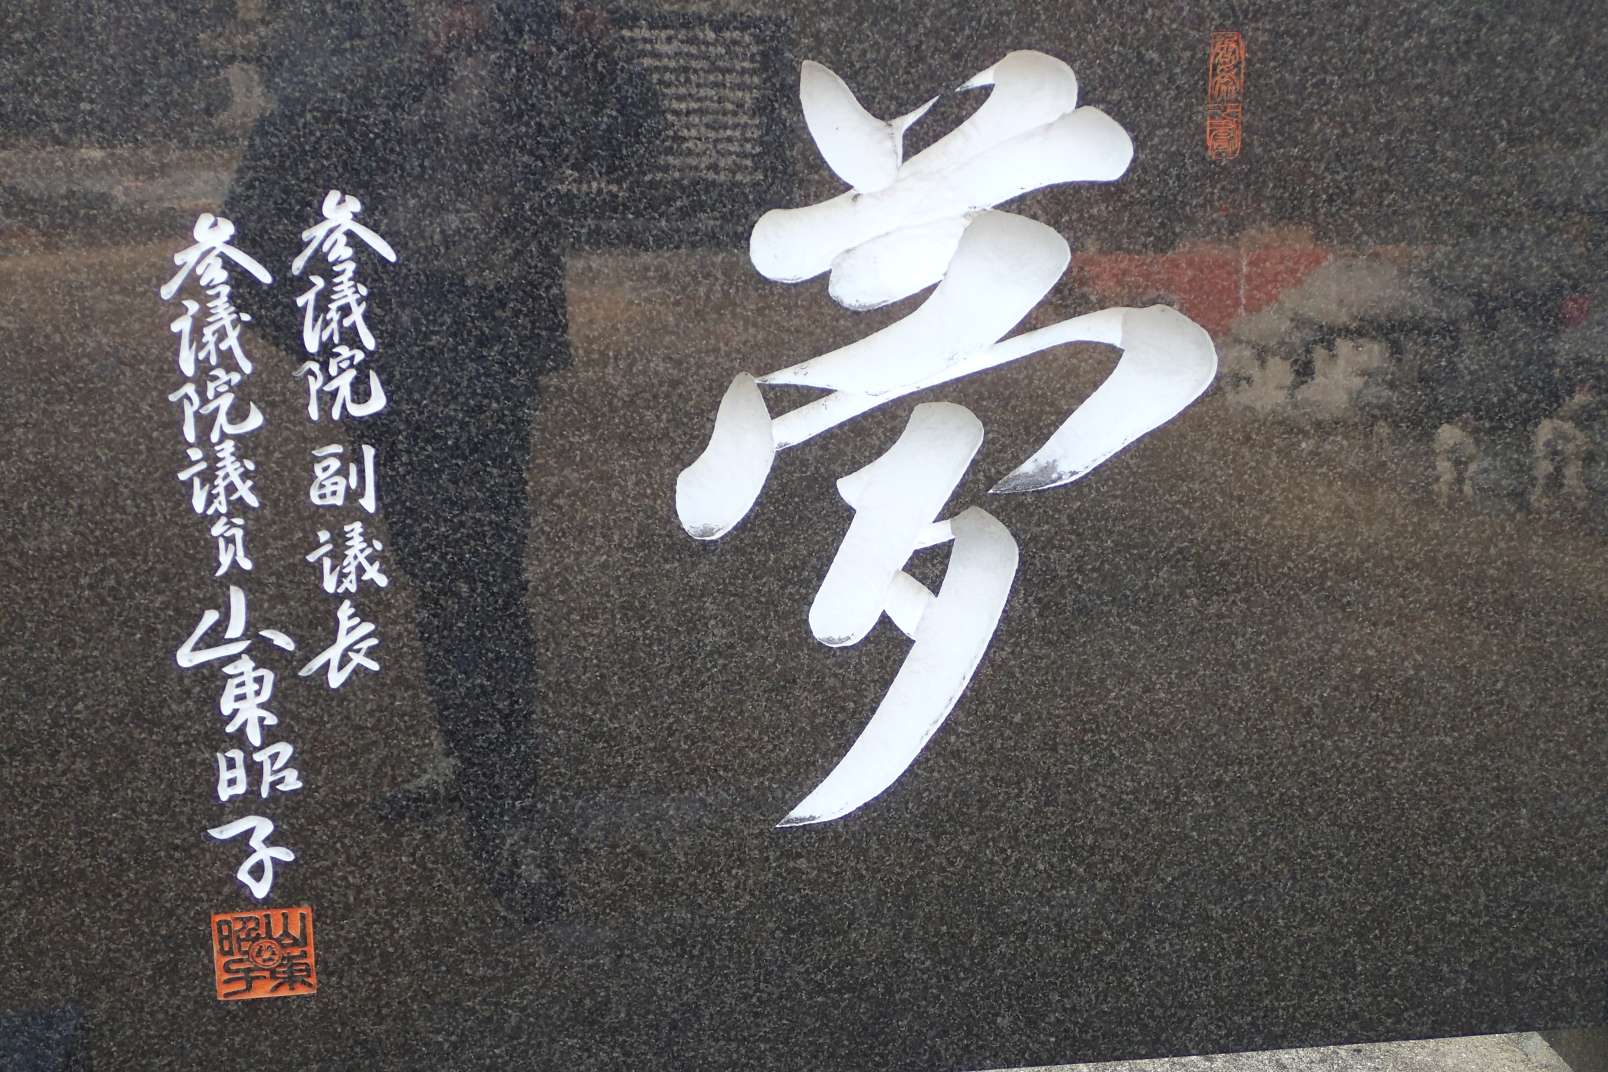 夢
参議院副議長
参議院議員山東昭子
山東昭子